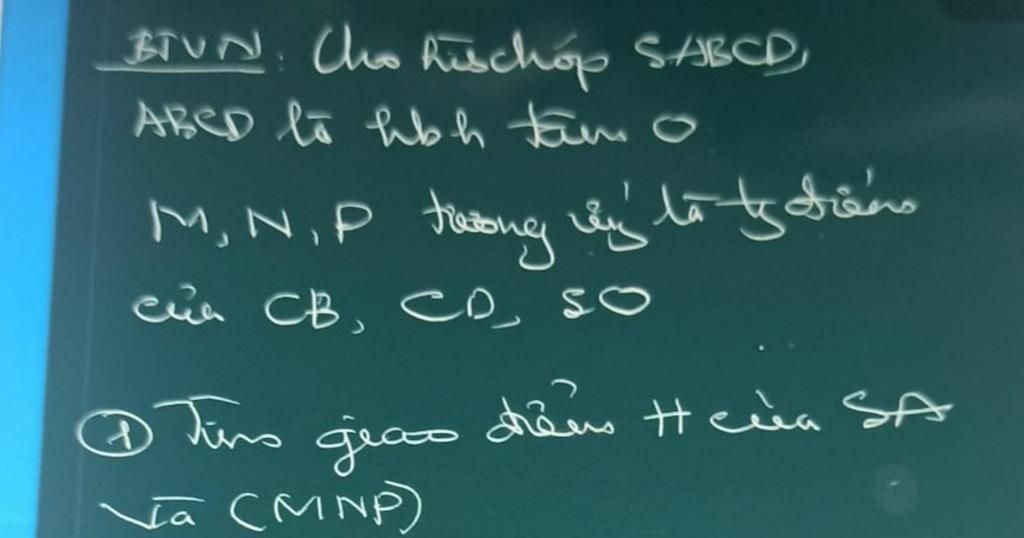 BTVN: Cho hình chóp SABCD,
ABCD là hbh tâm O
M, N, P tương ứng là tg điểm
của CB, CD, SO
① Tìm giao điểm H của SA
và (MNP)